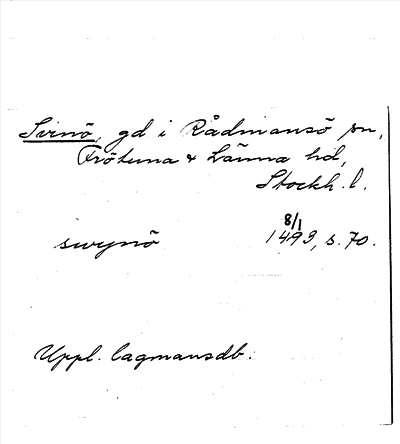 Svinö, gd i Rådmansö sn,
Frötuna & Länna hd,
Stockh. l.
swynö 8/1 1493, s. 70.
Uppl. lagmansdb.